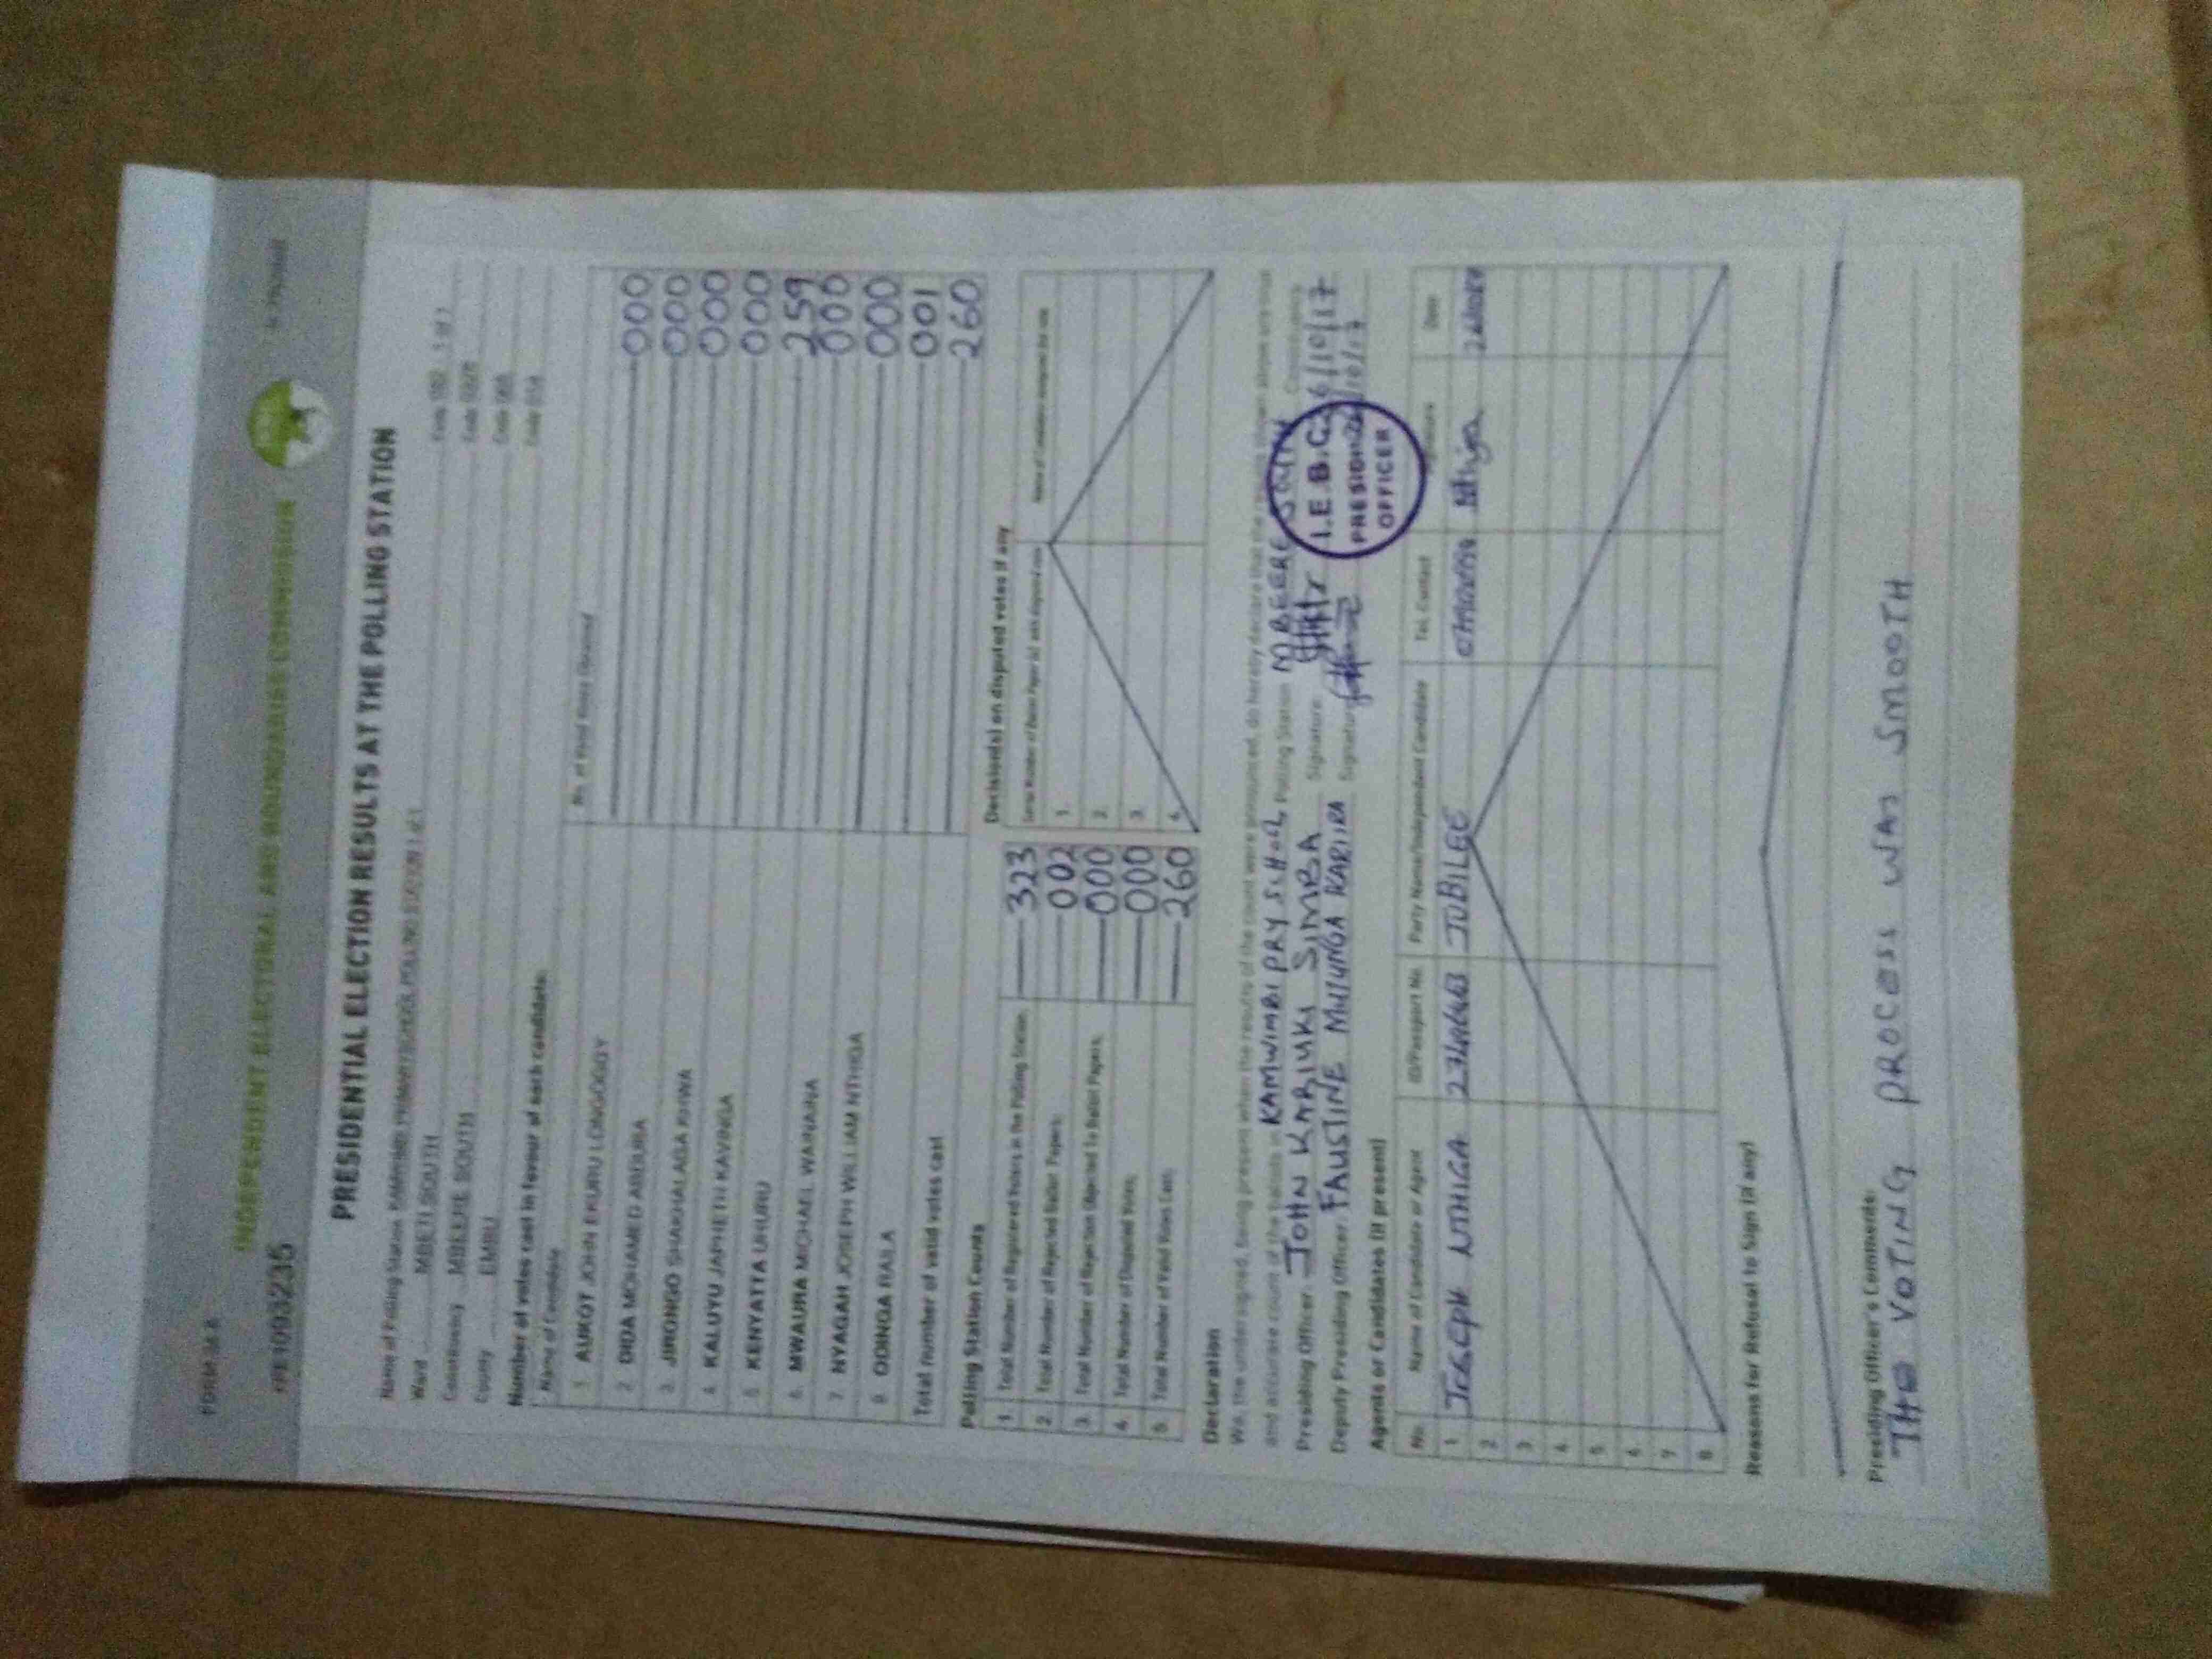 FORM 34 A
INDEPENDENT ELECTORAL AND BOUNDARIES COMMISSION
PRESIDENTIAL ELECTION RESULTS AT THE POLLING STATION
Name of Polling Station
Ward MBETI SOUTH
Constituency MBEERE SOUTH
County EMBU
Number of votes cast in favour of each candidate:
Name of Candidate No. of Valid Votes Obtained
1. AUKOT JOHN EKURU LONGOGGY 000
2. DIDA MOHAMED ABDUBA 000
3. JIRONGO SHAKHALAGA KHWA 000
4. KALUYU JAPHETH KAVINGA 000
5. KENYATTA UHURU 259
6. MWAURA MICHAEL WAINAINA 000
7. NYAGAH JOSEPH WILLIAM NTHIGA 000
8. ODINGA RAILA 001
Total number of valid votes cast 260
Polling Station Counts
1. Total Number of Registered Voters in the Polling Station 323
2. Total Number of Rejected Ballot Papers 002
3. Total Number of Rejection Objected To Ballot Papers 000
4. Total Number of Disputed Votes 000
5. Total Number of Valid Votes Cast 260
Decision(s) on disputed votes if any
1.
2.
3.
4.
Declaration
We, the undersigned, being present when the results of the count were announced, do hereby declare that the results shown above are true
and accurate count of the ballots in KAMWIMBI PRY SCHOOL Polling Station MBEERE SOUTH Constituency
Presiding Officer JOHN KARIUKI SIMBA Signature 26/10/17
Deputy Presiding Officer FAUSTINE MUTUNGA KARIRA Signature
I.E.B.C.
PRESIDING
OFFICER
Agents or Candidates (if present)
No. Name of Candidate or Agent ID/Passport No. Party Name/Independent Candidate Tel. Contact Signature Date
1 JOSEPH NTHIGA JUBILEE
2
3
4
5
6
7
8
Reasons for Refusal to Sign (if any)
Presiding Officer's Comments:
THE VOTING PROCESS WAS SMOOTH